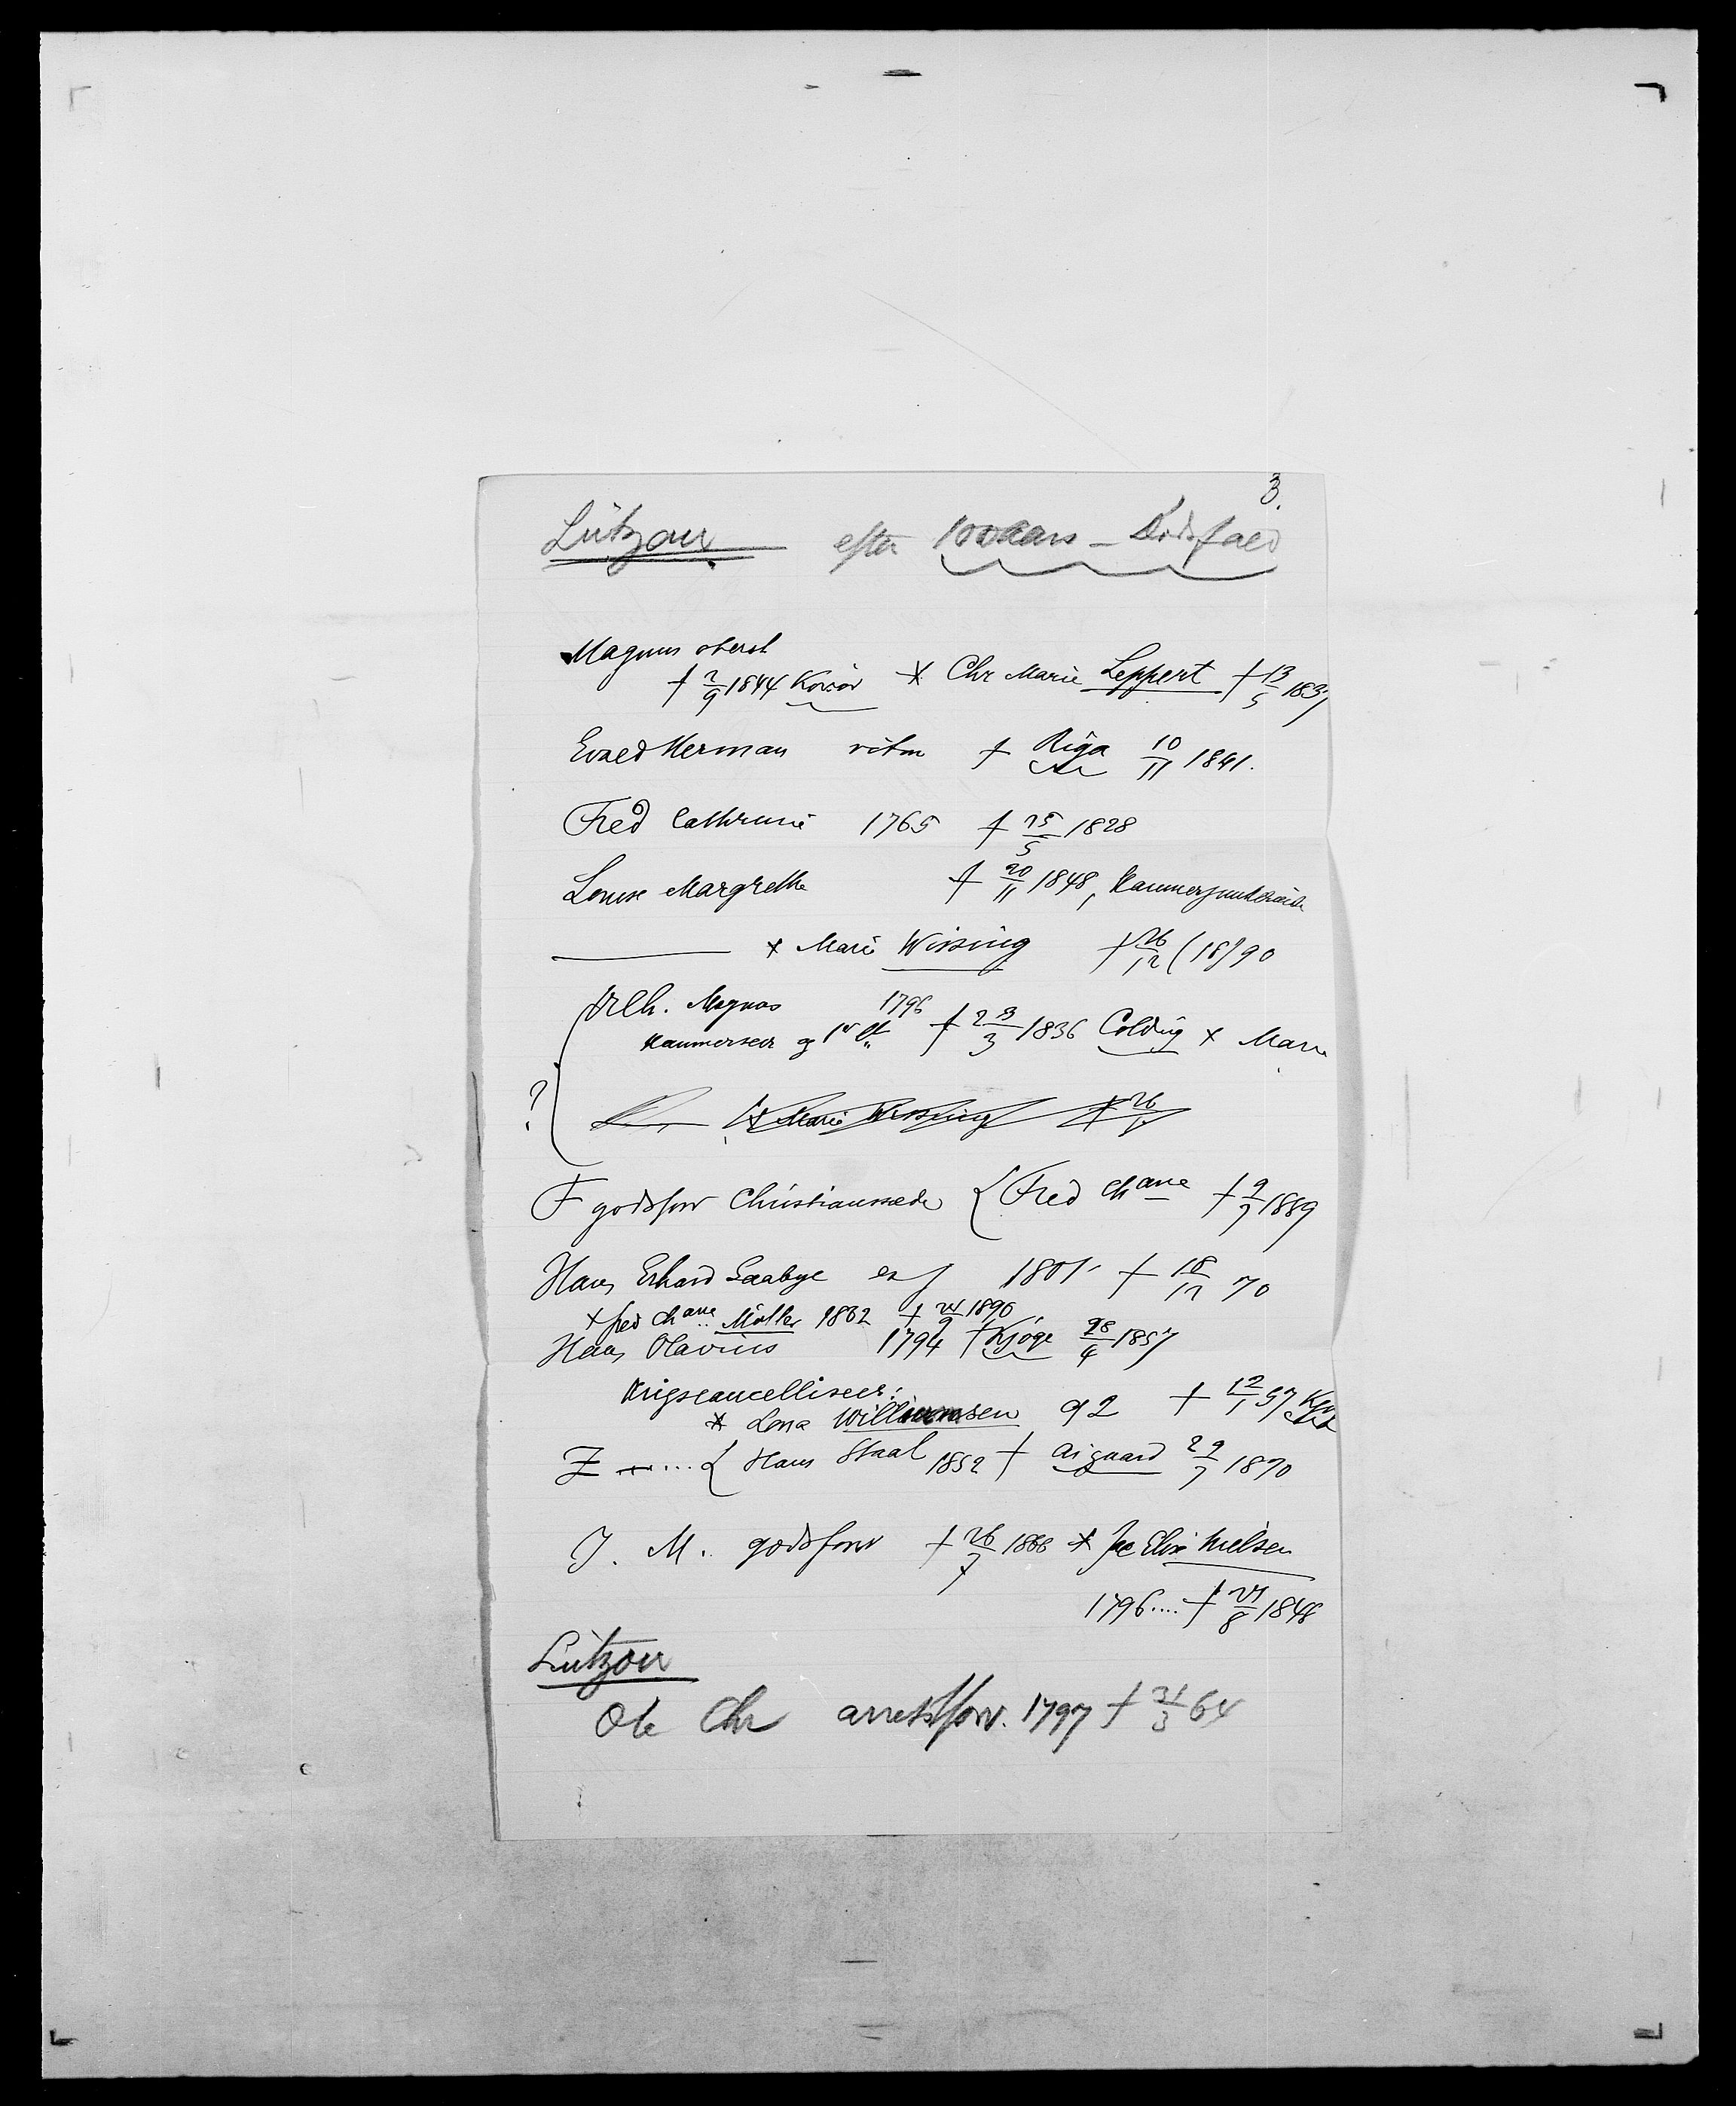 3.
Lützow efter 100Aars - Dødsfald
Magnus oberst
† 2/9 1844 Korsör * Chr Marie Leppert † 13/5 1837
Evald Herman ritm † Riga 10/11 1841.
Fred Cathrine 1765 † 25/5 1828
Louise Margrethe † 20/11 1848, Kammerjunkerinde
* Marie Wissing † 26/12 (18)90
Vilh. Magnus 1796
Kammerseer og pr lt † 23/3 1836 Colding * Marie
? * Marie Wissing † 26
F godsforv Christianssæde { Fred Chane † 9/7 1889
Hans Erhard Saabye 1801 † 18/12 70
* fred Chane Møller 1862 † 24/9 1896
Hans Olavius 1794 † Kjøge 28/4 1857
Krigscancelliseer:
* Lena Willumsen 92 † 12/1 57 Kjø
Z ..... { Hans Staal 1852 † Aisgaard 29/7 1870
J. M. godsforv † 26/7 1866 * Elise Nielsen
1796.... † 21/8 1848
Lützow
Ole Chr arrestforv. 1797 † 31/3 64